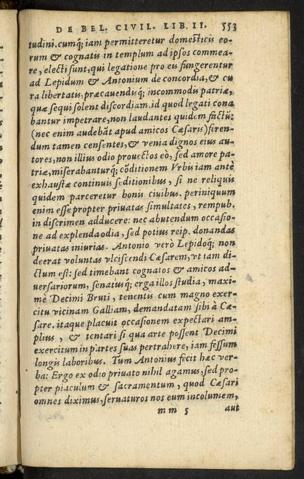 DE BEL. CIVIL. LIB. II. 553
tudini. cumq́; iam permitteretur domesticis eo-
rum & cognatis in templum ad ipsos commea-
re, electi sunt, qui legatione pro eis fungerentur
ad Lepidum & Antonium de concordia, & cu
ra libertatis, præcauendisq́; incommodis patriæ,
quæ sequi solent discordiam. id quod legati cona
bantur impetrare, non laudantes quidem factũ:
(nec enim audebāt apud amicos Cæsaris) feren-
dum tamen censentes, & venia dignos eius au-
tores, non illius odio prouectos eò, sed amore pa-
triæ, miserabanturq́; cōditionem Vrbis iam antè
exhaustæ continuis seditionibus, si ne reliquis
quidem parceretur bonis ciuibus. periniquum
enim esse propter priuatas simultates, rempub.
in discrimen adducere: nec abutendum occasio-
ne ad explenda odia, sed potius reip. donandas
priuatas iniurias. Antonio verò Lepidoq́; non
deerat voluntas vlciscendi Cæsarem, vt iam di-
ctum est: sed timebant cognatos & amicos ad-
uersariorum, senatusq́; erga illos studia, maxi-
mè Decimi Bruti, tenentis cum magno exer-
citu vicinam Galliam, demandatam sibi à Cæ-
sare. itaque placuit occasionem expectari am-
plius, & tentari si qua arte possent Decimi
exercitum in partes suas pertrahere, iam fessum
longis laboribus. Tum Antonius fecit hæc ver-
ba: Ergo ex odio priuato nihil agamus, sed pro-
pter piaculum & sacramentum, quod Cæsari
omnes diximus, seruaturos nos eum incolumem,
mm 5 aut